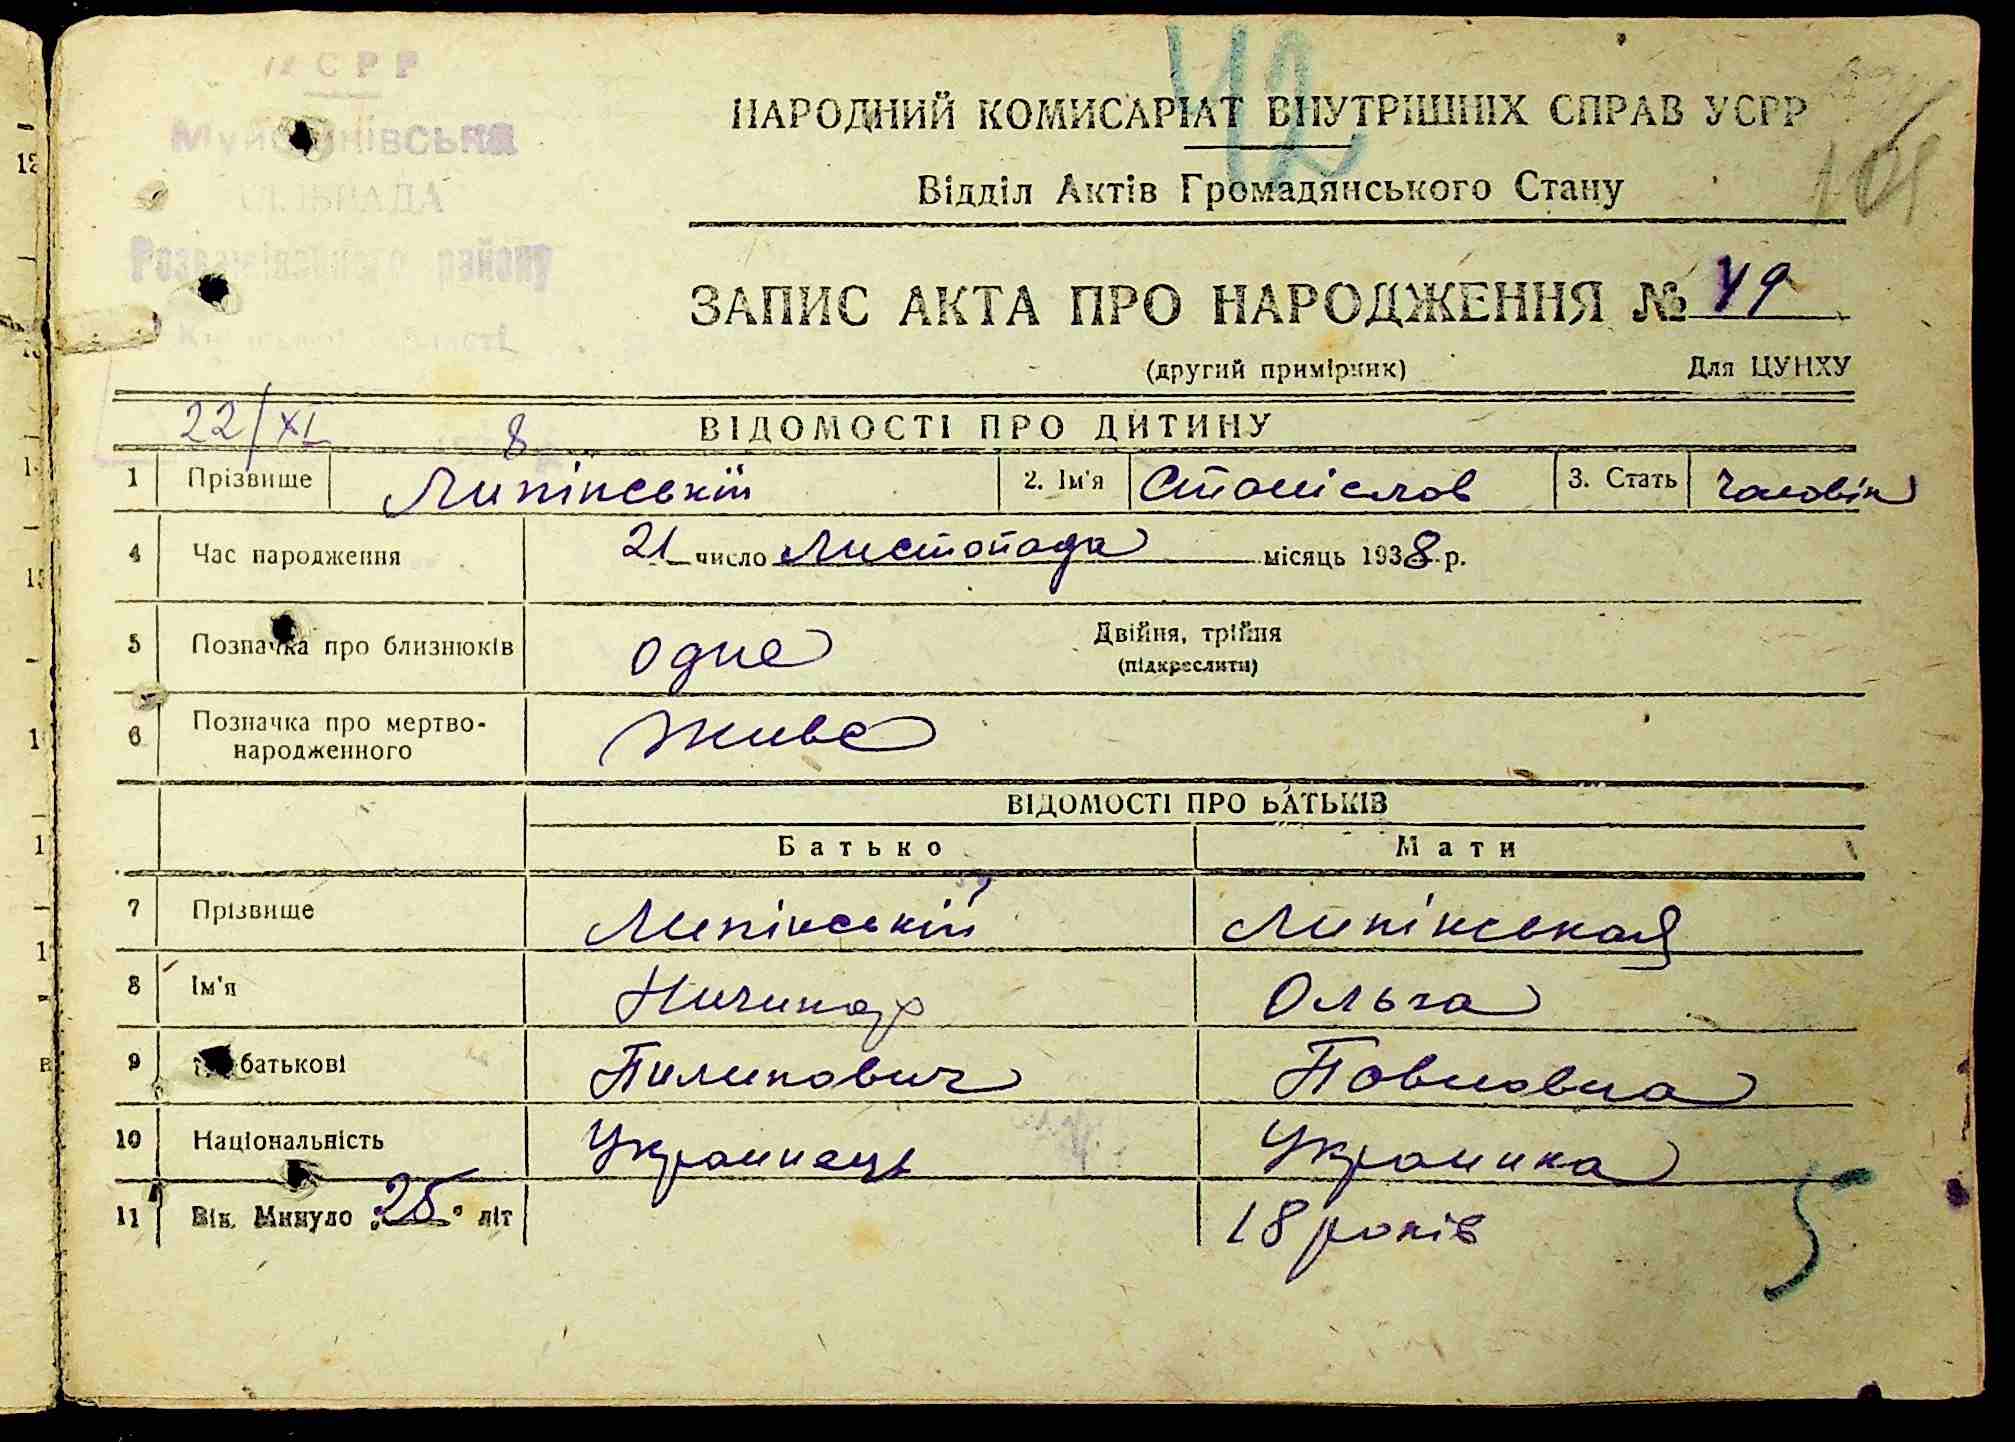 УСРР
НАРОДНИЙ КОМИСАРІАТ ВНУТРІШНІХ СПРАВ УСРР
Відділ Актів Громадянського Стану
СІЛЬРАДА
району
ЗАПИС АКТА ПРО НАРОДЖЕННЯ № 49
(другий примірник) Для ЦУНХУ
22/XI 8
ВІДОМОСТІ ПРО ДИТИНУ
1 Прізвище Липінській 2. Ім'я Станіслов 3. Стать Чоловік
4 Час народження 21 число Листопада місяць 1938 р.
5 Позначка про близнюків одне Двійня, трійня
(підкреслити)
6 Позначка про мертво-
народженного Живе
ВІДОМОСТІ ПРО БАТЬКІВ
Батько Мати
7 Прізвище Липінській Липінськая
8 Ім'я Ничипор Ольга
9 батькові Пилипович Повловна
10 Національність Украинець Украинка
11 Вік. Минуло „25" літ 18 років
42
5